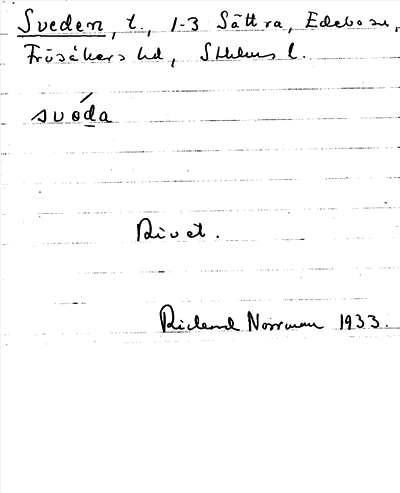 Sveden, t., 1-3 Sättra, Edebo sn,
Frösåkers hd, Sthlms l.
svóda
Rivet.
Rickard Norrman 1933.